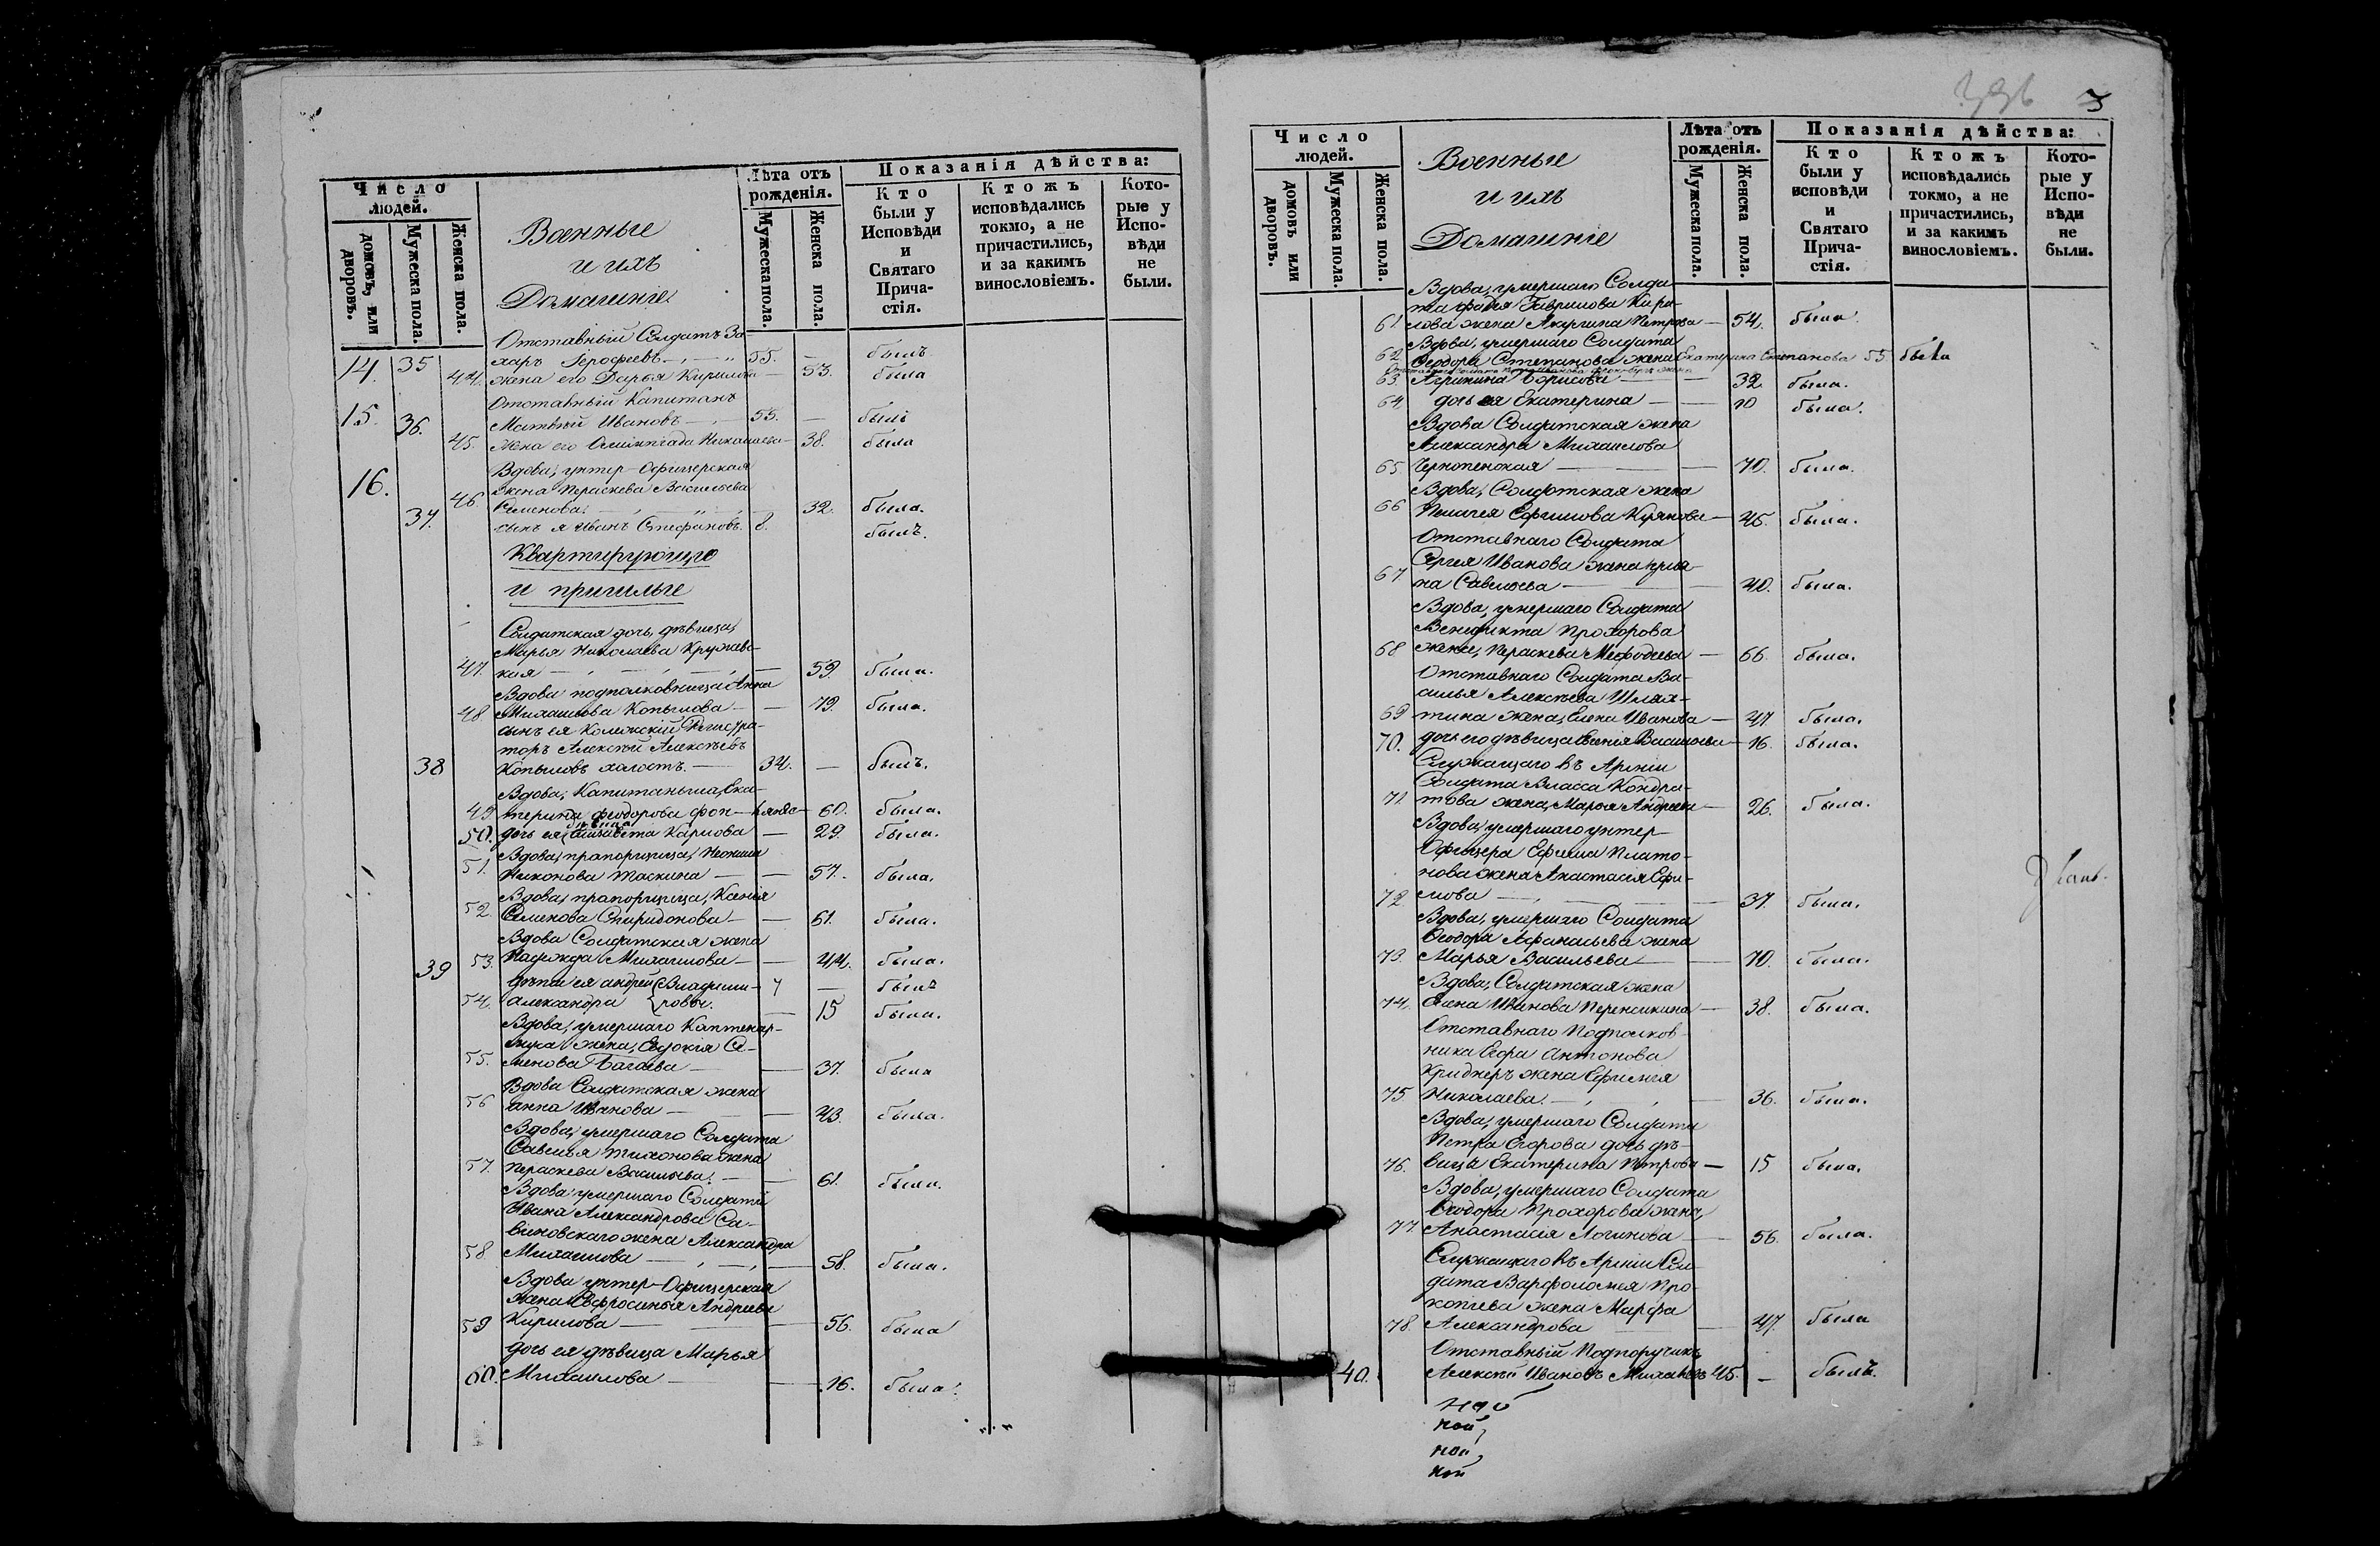 Число людей.
домовъ, или дворовъ.
Мужеска пола.
Женска пола.
Военные
и ихъ
Домашніе.
Лѣта отъ рожденія.
Мужеска пола.
Женска пола.
Показанія дѣйства:
Кто были у Исповѣди и Святаго Причастія.
Ктожъ исповѣдались токмо, а не причастились, и за какимъ винословіемъ.
Которые у Исповѣди не были.
Отставный Солдатъ За-
14. 35 харъ Ерофеевъ 55. — былъ
44. жена его Дарья Кирилова — 53. была
Отставный Капитанъ
15. 36. Матвѣй Ивановъ — 55. — былъ
45. жена его Олимпіада Николаева — 38. была
Вдова, унтер-Офицерская
16. 46. жена Параскева Васильева
Семенова 32. была.
37. сынъ я Иванъ Стефановъ. 8. былъ.
Квартирующіе
и пришлые
Солдатская дочь, дѣвица,
Марья Николаева Кружевс-
47. кая — 59. была.
Вдова подполковница Анна
48 Михайлова Копылова — 79. была.
сынъ ея Колежскій Регистра-
торъ Алексѣй Алексѣевъ
38 Копыловъ холостъ. — 34. — былъ.
Вдова, Капитанша, Ека-
49 терина Феодорова фон- — 60. была.
50. дочь ея дѣвица Елизавета Карлова — 29. была.
Вдова, прапорщица, Неонила
51. Никонова Таскина — 57. была.
Вдова, прапорщица, Ксенія
52. Семенова Спиридонова — 61. была.
Вдова Солдатская жена
53. Надежда Михайлова — 44. была.
39 дѣти ея андрей Владими- 7 — былъ
54. александра ровы. 15 была.
Вдова, умершаго Каптенар-
муса жена, Евдокія Се-
55. менова Багаева — 37. была
Вдова Солдатская жена
56 анна Иванова — 43. была.
Вдова, умершаго Солдата
Савелья Тихонова жена
57. Параскева Васильева. — 61. была.
Вдова умершаго Солдата
Ивана Александрова Са-
виновскаго жена Александра
58. Михайлова — 58. была.
Вдова унтер-Офицерская
жена Евфросинья Андреева
59 Кирилова — 56. была
дочь ея дѣвица Марья
60. Михайлова — 16. была.
3
Число людей.
домовъ или дворовъ.
Мужеска пола.
Женска пола.
Военные
и ихъ
Домашніе
Лѣта отъ рожденія.
Мужеска пола.
Женска пола.
Показанія дѣйства:
Кто были у исповѣди и Святаго Причастія.
Ктожъ исповѣдались токмо, а не причастились, и за какимъ винословіемъ.
Которые у Исповѣди не были.
Вдова, умершаго Солда-
та Фадея Гаврилова Кири-
61. лова жена Акулина Петрова — 54. была.
Вдова, умершаго Солдата
62 Феодора Степанова жена Екатерина Степанова 55 была
63. Агрипина Борисова — 32. была.
64. дочь ея Екатерина — 10 была.
Вдова Солдатская жена
Александра Михайлова
65 — 70. была.
Вдова, Солдатская жена
66 Пелагея Ефимова — 45. была.
Отставнаго Солдата
Сергея Иванова жена улья-
67 на Савельева — 40. была.
Вдова, умершаго Солдата
Венедикта Прохорова
68 жена, Параскева Мефодьева — 66. была.
Отставнаго Солдата Ва-
силья Алексѣева Шлях-
69 тина жена, Елена Иванова — 47 была.
70. дочь его дѣвица Васильева — 16. была.
Служащаго въ Арміи
Солдата Власса Кондра-
71. това жена, Марья Андреева — 26. была.
Вдова, умершаго унтер-
Офицера Ефима Плато-
нова жена Анастасія Ефи-
72. мова — 37. была.
Вдова, умершаго Солдата
Феодора Афанасьева жена
73. Марья Васильева — 70. была.
Вдова, Солдатская жена
74. Елена Иванова — 38. была.
Отставнаго Подполков-
ника Егора Антонова
Криднеръ жена Ефимія
75 Николаева. — 36. была.
Вдова, умершаго Солдата
Петра Егорова дочь дѣ-
76. вица Екатерина Петрова — 15 была.
Вдова, умершаго Солдата
Феодора Прохорова жена,
77 Анастасія Логинова — 56. была.
Служащаго въ Арміи Сол-
дата Варфоломея Про-
копіева жена Марфа
78. Александрова — 47. была
Отставный Подпоручикъ
40. Алексѣй Ивановъ 45. — былъ.
ной
ной
ной